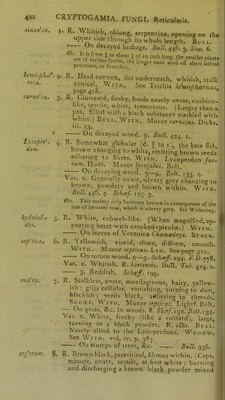 422 CRYPTOGAMIA. FUNGI. Reticularia.
2. R. Whitish, oblong, serpentine, opening on the
upper side through its whole length. BULL.
—— On decayed herbage. Bull. 446. 3. Sow. 6.
Obs. It is from ¼ to about ½ of an inch long, the smaller plants
are of various forms, the longer ones send off short lateral
R. Head convex, flat underneath, whitish, stalk
conical. WITH. See Trichia
page 418.
R. Clustered, fleshy, heads nearly ovate, cushion-
like, sessile, white, sometimes. [Larger than a
pea, filled with a black substance marbled with
white.] BULL. WITH. Mucor Dicks.
iii. 23.
—— On decayed wood. 9. Bull. 424. 2.
4. R. Somewhat globular (d. ½ to 1, the base flat,
brown changing to white, emitting brown seeds
adhering to fibres. WITH. Lycoperdon fus-
cum. Huds. Mucor lycogalus, Bolt.
—— On decaying wood. 9—5. Bolt. 133. 2.
Var. 2. Generally ovate, silvery grey changing to
brown, powdery and brown within. WITH.
Bull. 446. 4. Schæf. 195. 3.
Obs. This variety only becomes brown in consequence of the
loss of its outer coat, which is silvery grey. See Withering.
5. R. White, cobweb-like. (When magnified, ap-
pearing beset with crooked spiculæ.) WITH.
—— On leaves of Veronica Chamædrys. STACK.
septica. 6. R. Yellowish, viscid, slimy, diffuse, smooth.
WITH. Mucor septicus. Lin. See page 421.
—— On rotten wood. 9—5. Schæff. 194. F.D. 778.
Var. 2. Whitish. R. hortensis, Bull. Tab. 424. 2.
—— 3. Reddish. Schæff. 193.
ovata. 7. R. Stalkless, ovate, mucilaginous, hairy, yellow-
ish: gills cellular, vanishing, turning to dust,
blackish; seeds black, adhering to threads.
SCHÆF. WITH. Mucor septicus. Lightf. Bolt.
—— On grass, &c. in woods. 8. Schæf. 192. Bolt. 134.
Var. 2. White, frothy (like a custard), large,
turning to a black powder. R. alba. BULL.
Nearly allied to the Lycoperdons. WOODW.
See WITH. vol. iv. p. 387.
—— On stumps of trees, &c. —— Bull. 326.
segetum. 8. R. Brown black, parasitical, fibrous within. (Caps.
minute, ovate, sessile, at first white; bursting
and discharging a brown black powder mixed